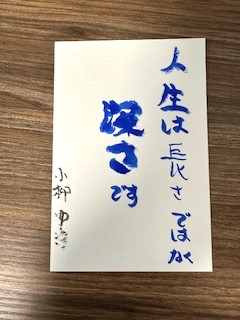 人生は長さではなく
深さです
小柳